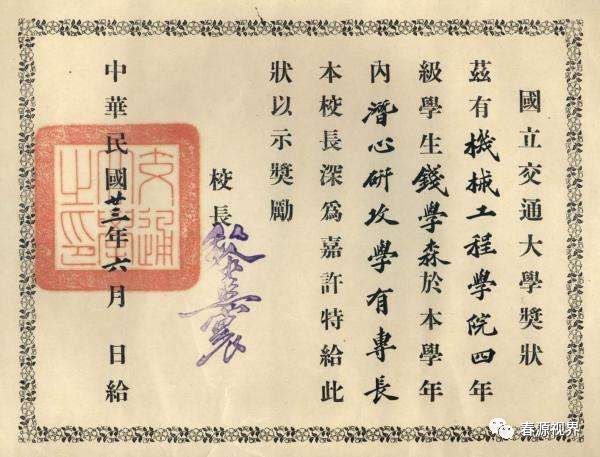 國立交通大學獎狀
茲有機械工程學院四年
級學生錢學森於本學年
內潛心研攻學有專長
本校長深為嘉許特給此
狀以示獎勵
校長 黎照寰
中華民國廿三年六月 日給
交通大學之印
春源视界